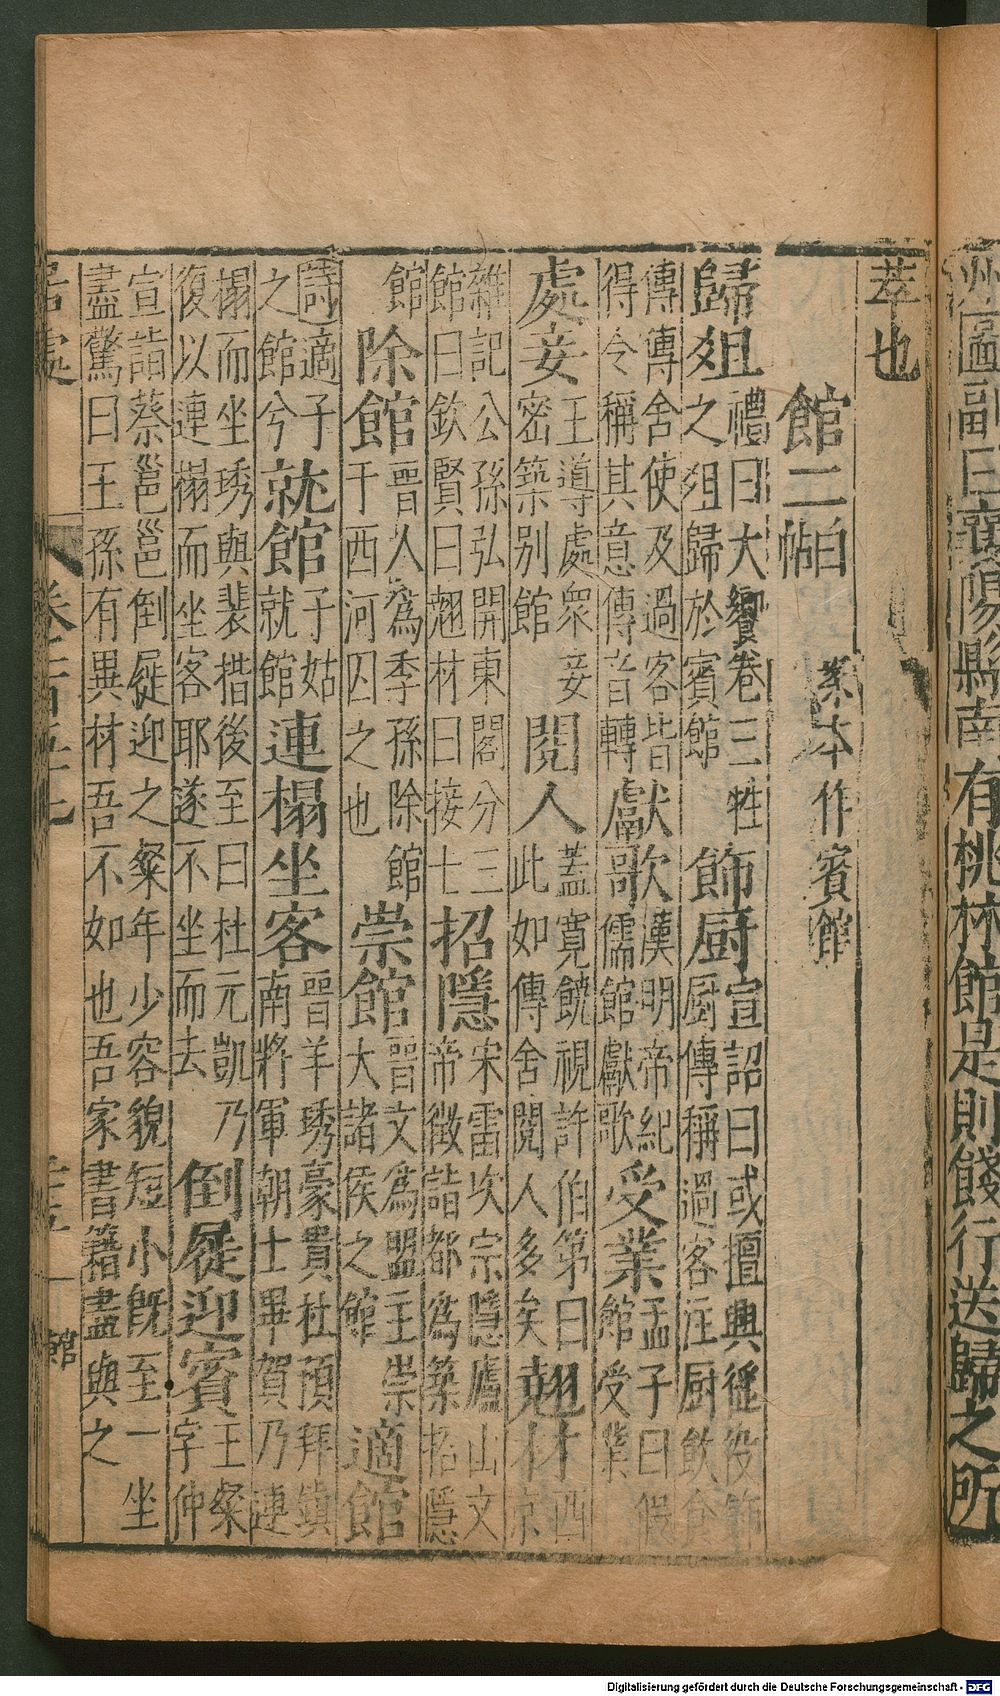 州圖副曰襄陽縣南有桃林館是則餞行送歸之所
萃也
館二 白帖 業本作賓館
歸俎 禮曰大饗卷三牲之俎歸於賓館 飾厨 宣詔曰或擅興徭役飾厨傳稱過客注厨飲食
傳傳舍使及過客皆得令稱其意傳音轉 獻歌 漢明帝紀儒館獻歌 受業 孟子曰假館受業
處妾 王導處衆妾密築別館 閱人 蓋寬饒視許伯第曰此如傳舍閱人多矣 翹材 西京
雜記公孫弘開東閣分三館曰欽賢曰翹材曰接士 招隱 宋雷次宗隱廬山文帝徵詣都為築招隱
館 除館 晉人為季孫除館于西河囚之也 崇館 晉文為盟主崇大諸侯之館 適館
詩適子之館兮 就館 子姑就館 連榻坐客 晉羊琇豪貴杜預拜鎮南將軍朝士畢賀乃連
榻而坐琇與裴揩後至曰杜元凱乃復以連榻而坐客耶遂不坐而去 倒屣迎賓 王粲字仲
宣詣蔡邕邕倒屣迎之粲年少容貌短小既至一坐盡驚曰王孫有異材吾不如也吾家書籍盡與之
居處 卷 館
Digitalisierung gefördert durch die Deutsche Forschungsgemeinschaft - DFG